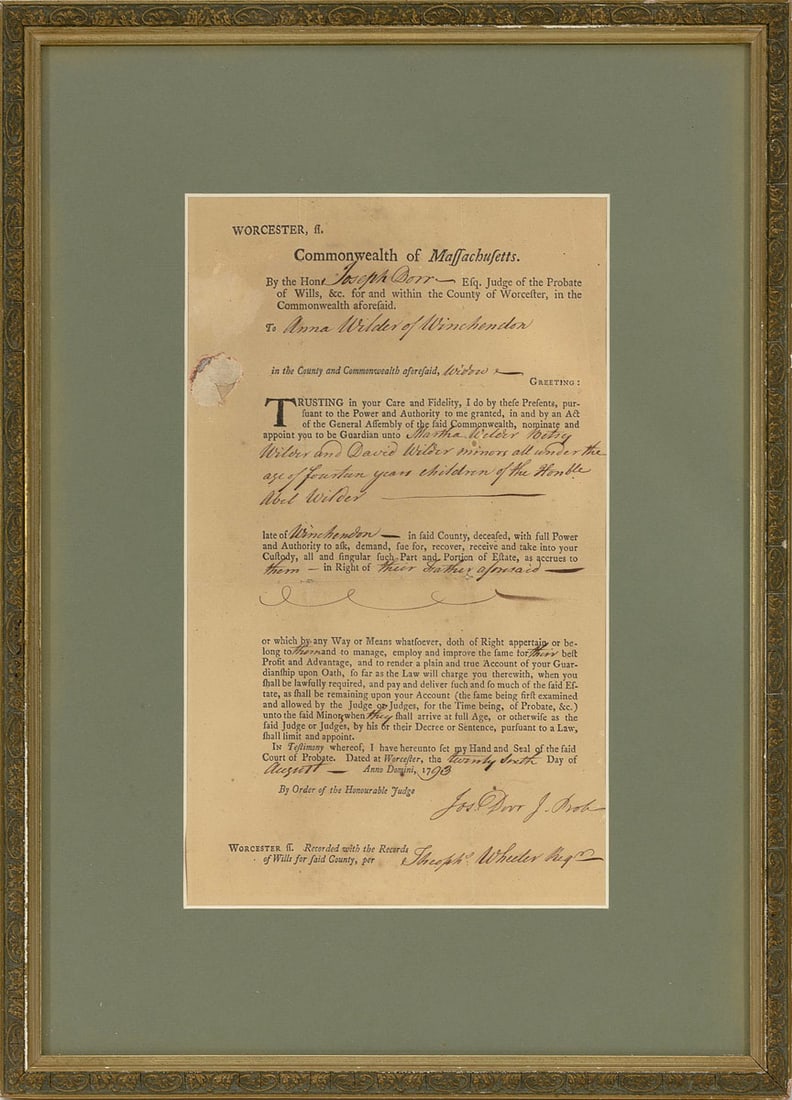 WORCESTER, ſſ.
Commonwealth of Maſſachuſetts.
By the Hon. Joseph Dorr Eſq. Judge of the Probate
of Wills, &c. for and within the County of Worceſter, in the
Commonwealth aforeſaid.
To Anna Wilder of Winchendon
in the County and Commonwealth aforeſaid, Widow
GREETING:
TRUSTING in your Care and Fidelity, I do by theſe Preſents, pur-
ſuant to the Power and Authority to me granted, in and by an Act
of the General Aſſembly of the ſaid Commonwealth, nominate and
appoint you to be Guardian unto Martha Wilder Betsy
Wilder and David Wilder minors all under the
age of fourteen years children of the Honble
Abel Wilder
late of Winchendon in ſaid County, deceaſed, with full Power
and Authority to aſk, demand, ſue for, recover, receive and take into your
Cuſtody, all and ſingular ſuch Part and Portion of Eſtate, as accrues to
them in Right of their Father aforesaid
or which by any Way or Means whatſoever, doth of Right appertain or be-
long to them and to manage, employ and improve the ſame for their beſt
Profit and Advantage, and to render a plain and true Account of your Guar-
dianſhip upon Oath, ſo far as the Law will charge you therewith, when you
ſhall be lawfully required, and pay and deliver ſuch and ſo much of the ſaid Eſ-
tate, as ſhall be remaining upon your Account (the ſame being firſt examined
and allowed by the Judge or Judges, for the Time being, of Probate, &c.)
unto the ſaid Minors when they ſhall arrive at full Age, or otherwiſe as the
ſaid Judge or Judges, by his or their Decree or Sentence, purſuant to a Law,
ſhall limit and appoint.
IN Teſtimony whereof, I have hereunto ſet my Hand and Seal of the ſaid
Court of Probate. Dated at Worceſter, the twenty sixth Day of
August Anno Domini, 1793
By Order of the Honourable Judge
Jos Dorr J. Prob
WORCESTER ſſ. Recorded with the Records
of Wills for ſaid County, per Theoph. Wheeler Regr